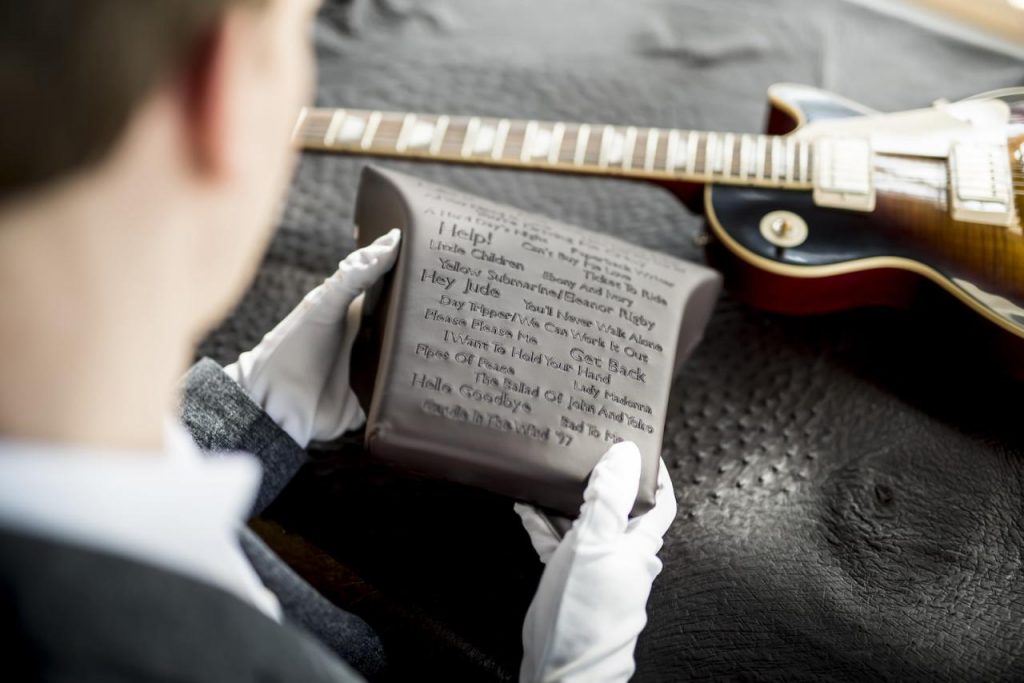 A Hard Day's Night Paperback Writer
Help! Can't Buy Me Love
Little Children Ebony And Ivory Ticket To Ride
Yellow Submarine/Eleanor Rigby
Hey Jude You'll Never Walk Alone
Day Tripper/We Can Work It Out
Please Please Me Get Back
I Want To Hold Your Hand
Pipes Of Peace Lady Madonna
The Ballad Of John And Yoko
Hello Goodbye Bad To Me
Candle In The Wind '97